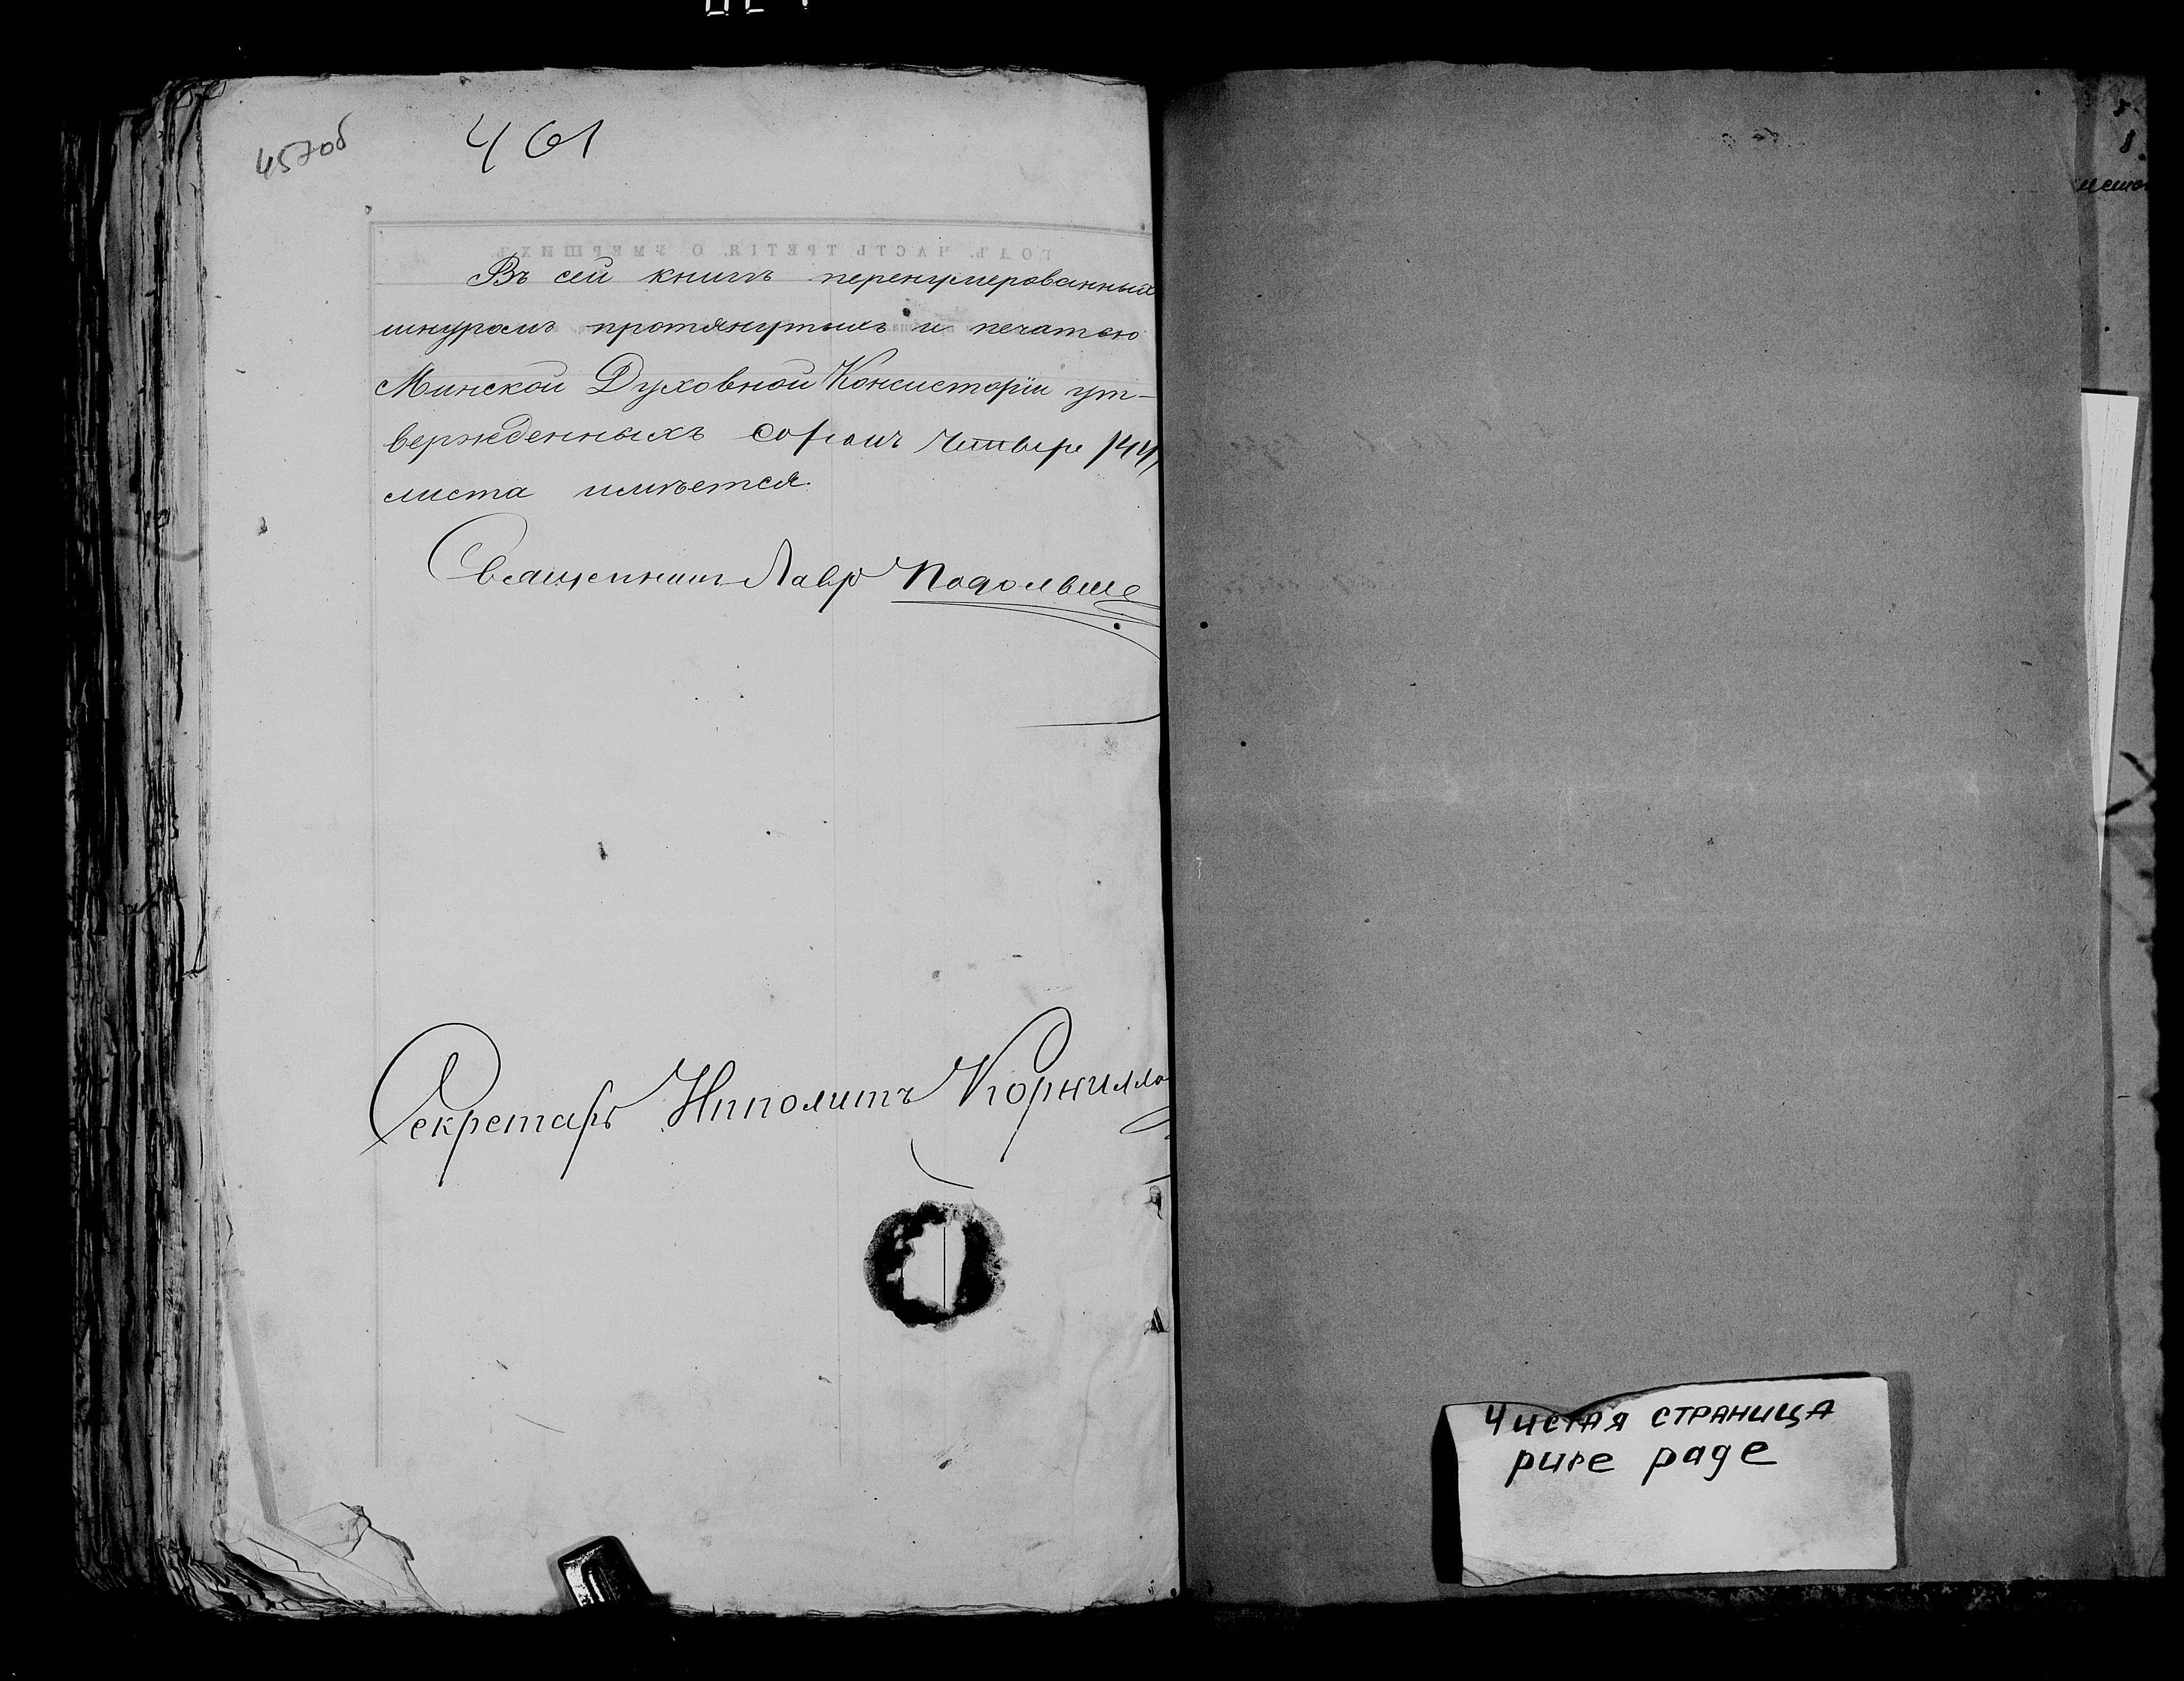 457об
461
Въ сей книгѣ перенумерованныхъ
шнуромъ протянутыхъ и печатью
Минской Духовной Консисторіи ут-
вержденныхъ сорокъ четыре /44/
листа имѣется.
Священникъ Лавр
Секретарь Ипполитъ Корнилло
ЧИСТАЯ СТРАНИЦА
pure page